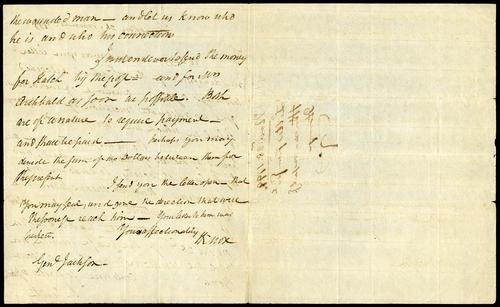 the wounded man — and let us know who
he is and who his connection
I will endeavor to send the money
for Hatch by the post — and for Mrs
Archbald as soon as possible. Both
are of a nature to require payment —
and shall be paid — Perhaps you may
divide the sum of 100 Dollars between them for
the present.
I send you the letter open — that
you may seal and give the direction that will
the soonest reach him — Your letter to him was
perfect.
Your affectionately
HKnox
Genl Jackson —